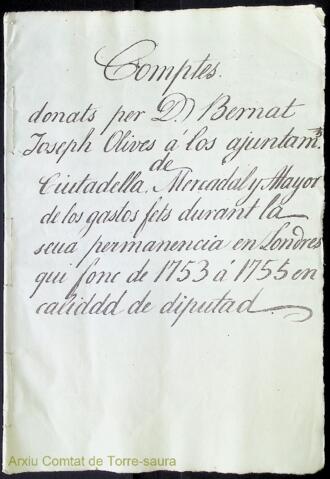 Comptes.
donats per Dn Bernat
Joseph Olives á los ajuntams.
de
Ciutadella, Mercadal y Mayor
de los gastos fets durant la
seua permanencia en Londres
qui fonc de 1753 á 1755 en
caliddd de diputad.
Arxiu Comtat de Torre-saura